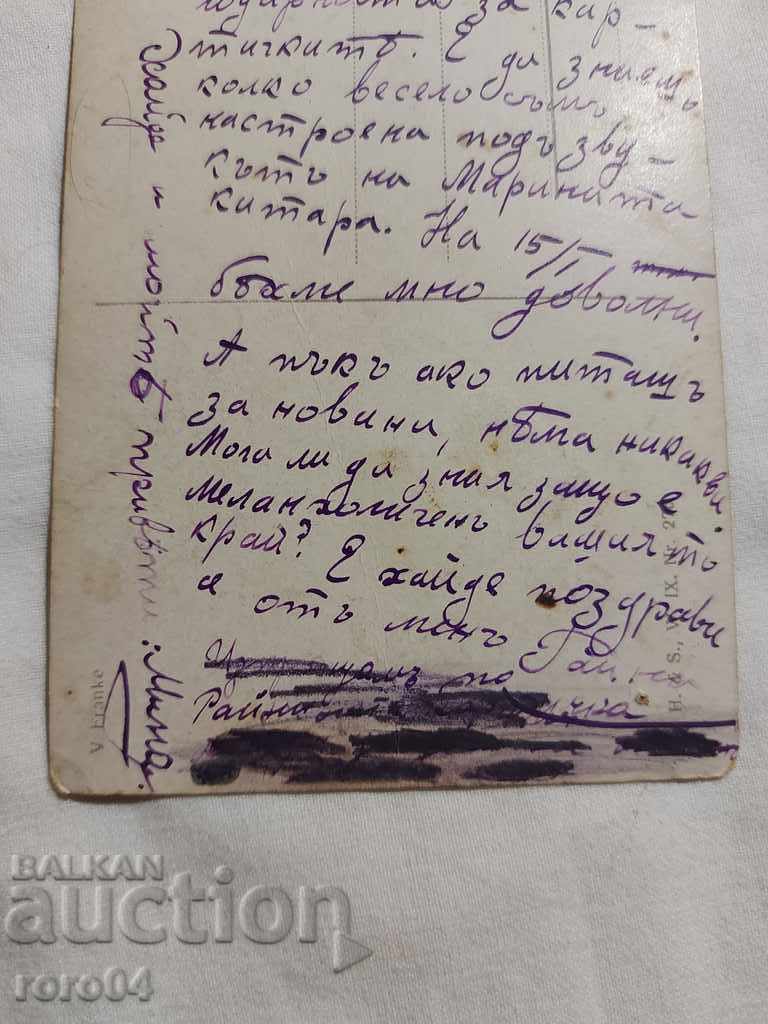 за кар-
тичкитѣ. Е да знаешъ
колко весело съмъ
настроена подъ зву-
кътъ на Марината
китара. На 15/I
бѣхме мно доволни.
А пъкъ ако питашъ
за новини, нѣма никакви.
Мога ли да зная защо е
меланхоличенъ вашиятъ
край? Е хайде поздрави
и отъ менъ
по
Хайде и мойтѣ привѣти: Мина.
V Franke
H. & S., W. IX. Nr. 2
BALKAN
auction
roro04